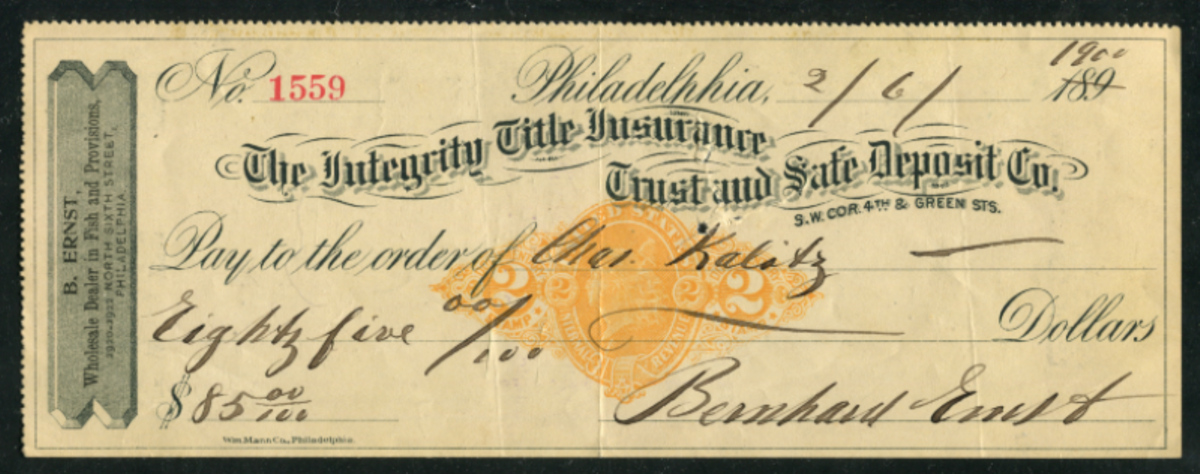 B. ERNST,
Wholesale Dealer in Fish and Provisions,
1920-1922 NORTH SIXTH STREET,
PHILADELPHIA.
No. 1559 Philadelphia, 2/6/ 1900 189
The Integrity Title Insurance
Trust and Safe Deposit Co.
S.W. COR. 4TH & GREEN STS.
Pay to the order of Chas. Kalitz
UNITED STATES
2 2 2 2
STAMP
INTERNAL REVENUE
Eighty five 00/100 Dollars
$ 85 00/100 Bernhard Ernst
Wm. Mann Co., Philadelphia.